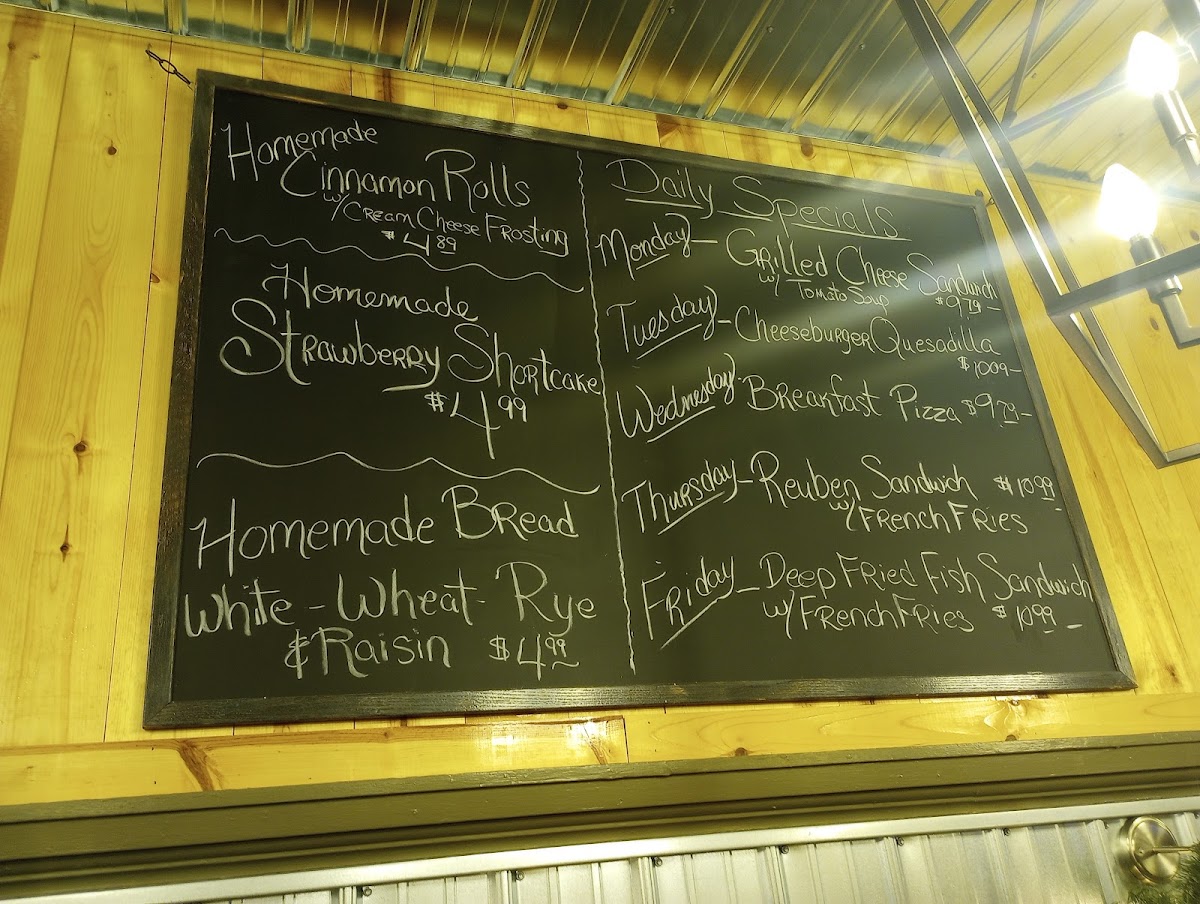 Homemade
Cinnamon Rolls
w/ Cream Cheese Frosting
$4.89
Homemade
Strawberry Shortcake
$4.99
Homemade Bread
White - Wheat - Rye
& Raisin $4.99
Daily Specials
Monday - Grilled Cheese Sandwich
w/ Tomato Soup $9.79
Tuesday - Cheeseburger Quesadilla
$10.09
Wednesday - Breakfast Pizza $9.79
Thursday - Reuben Sandwich $10.99
w/ French Fries
Friday - Deep Fried Fish Sandwich
w/ French Fries $10.99